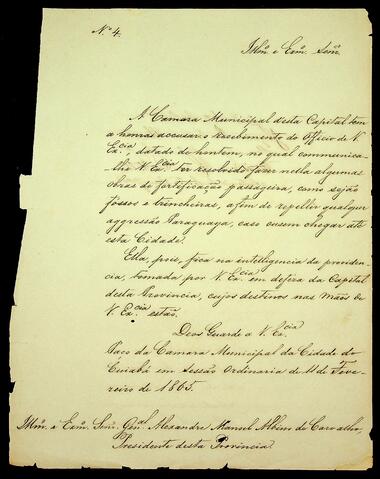 Nº 4.
Illmº e Exmº Senr.
A Camara Municipal desta Capital tem
a honra accusar o recebimento do Officio de V.
Excia, datado de hontem, no qual communica-
lhe V. Excia ter resolvido fazer nella algumas
obras de fortificação passageira, como sejão
fossos e trencheiras, afim de repellir qualquer
aggressão Paraguaya, caso ousem chegar até
esta Cidade.
Ella, pois, fica na intelligencia da providen-
cia, tomada por V. Excia em defeza da Capital
desta Provincia, cujos destinos nas mãos de
V. Excia estão.
Deos Guarde a V. Excia
Paço da Camara Municipal da Cidade do
Cuiabá em Sessão Ordinaria de 11 de Feve-
reiro de 1865.
Illmº e Exmº Senr. Genal Alexandre Manoel Albino de Carvalho,
Presidente desta Provincia.